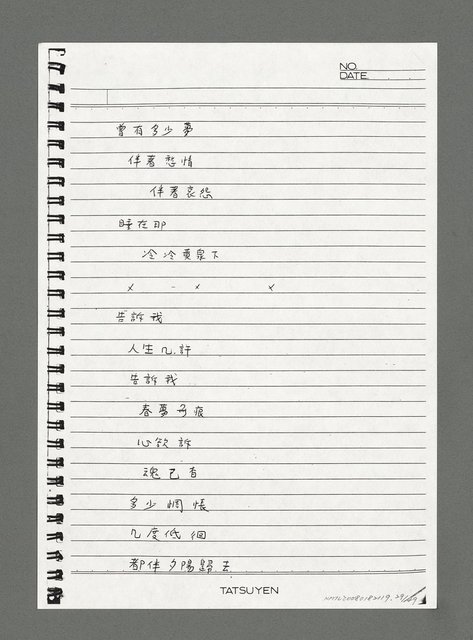 NO.
DATE
曾有多少夢
伴著愁情
伴著哀怨
睡在那
冷冷黃泉下
x - x x
告訴我
人生几許
告訴我
春夢了痕
心欲訴
魂已杳
多少惆悵
几度低徊
都伴夕陽歸去
TATSUYEN
NMTL20080182119. 29/29